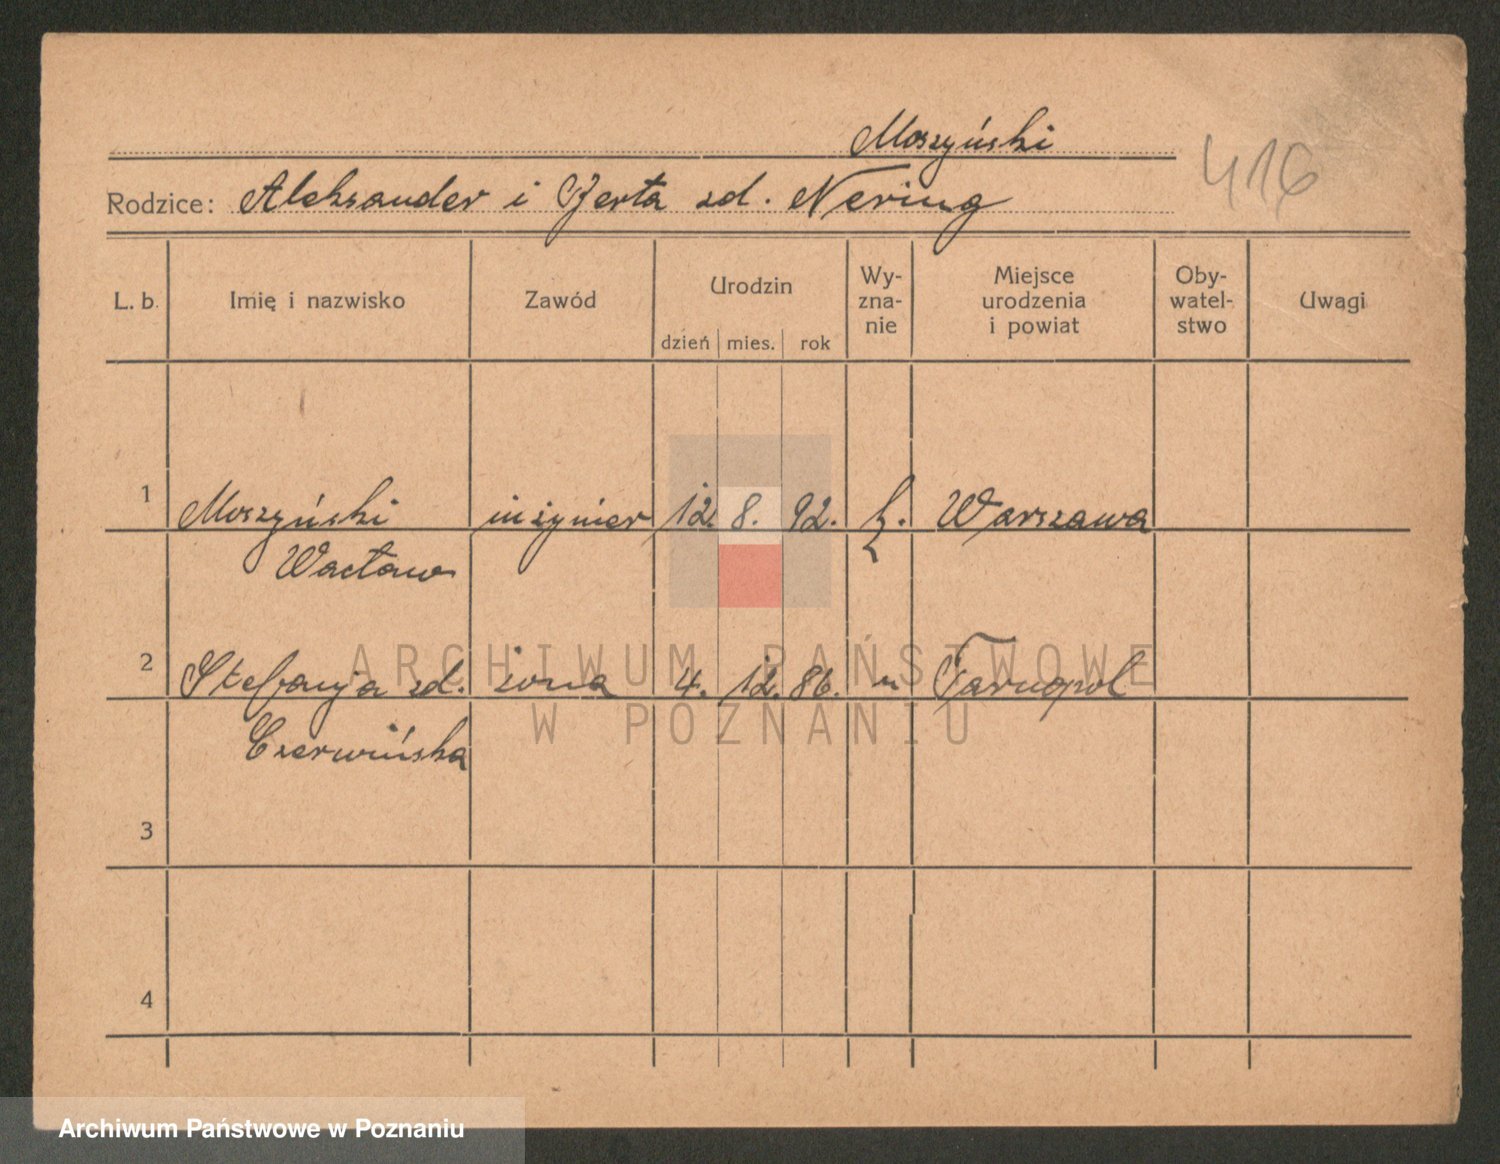 Moszyński
416
Rodzice: Aleksander i Berta zd. Nering
L. b. Imię i nazwisko Zawód Urodzin dzień mies. rok Wy-zna-nie Miejsce urodzenia i powiat Oby-watel-stwo Uwagi
1 Moszyński inżynier 12. 8. 92. k. Warszawa
Wacław
2 Stefanja zd. żona 4. 12. 86. " Tarnopol
Czerwińska
3
4
ARCHIWUM PAŃSTWOWE
W POZNANIU
Archiwum Państwowe w Poznaniu